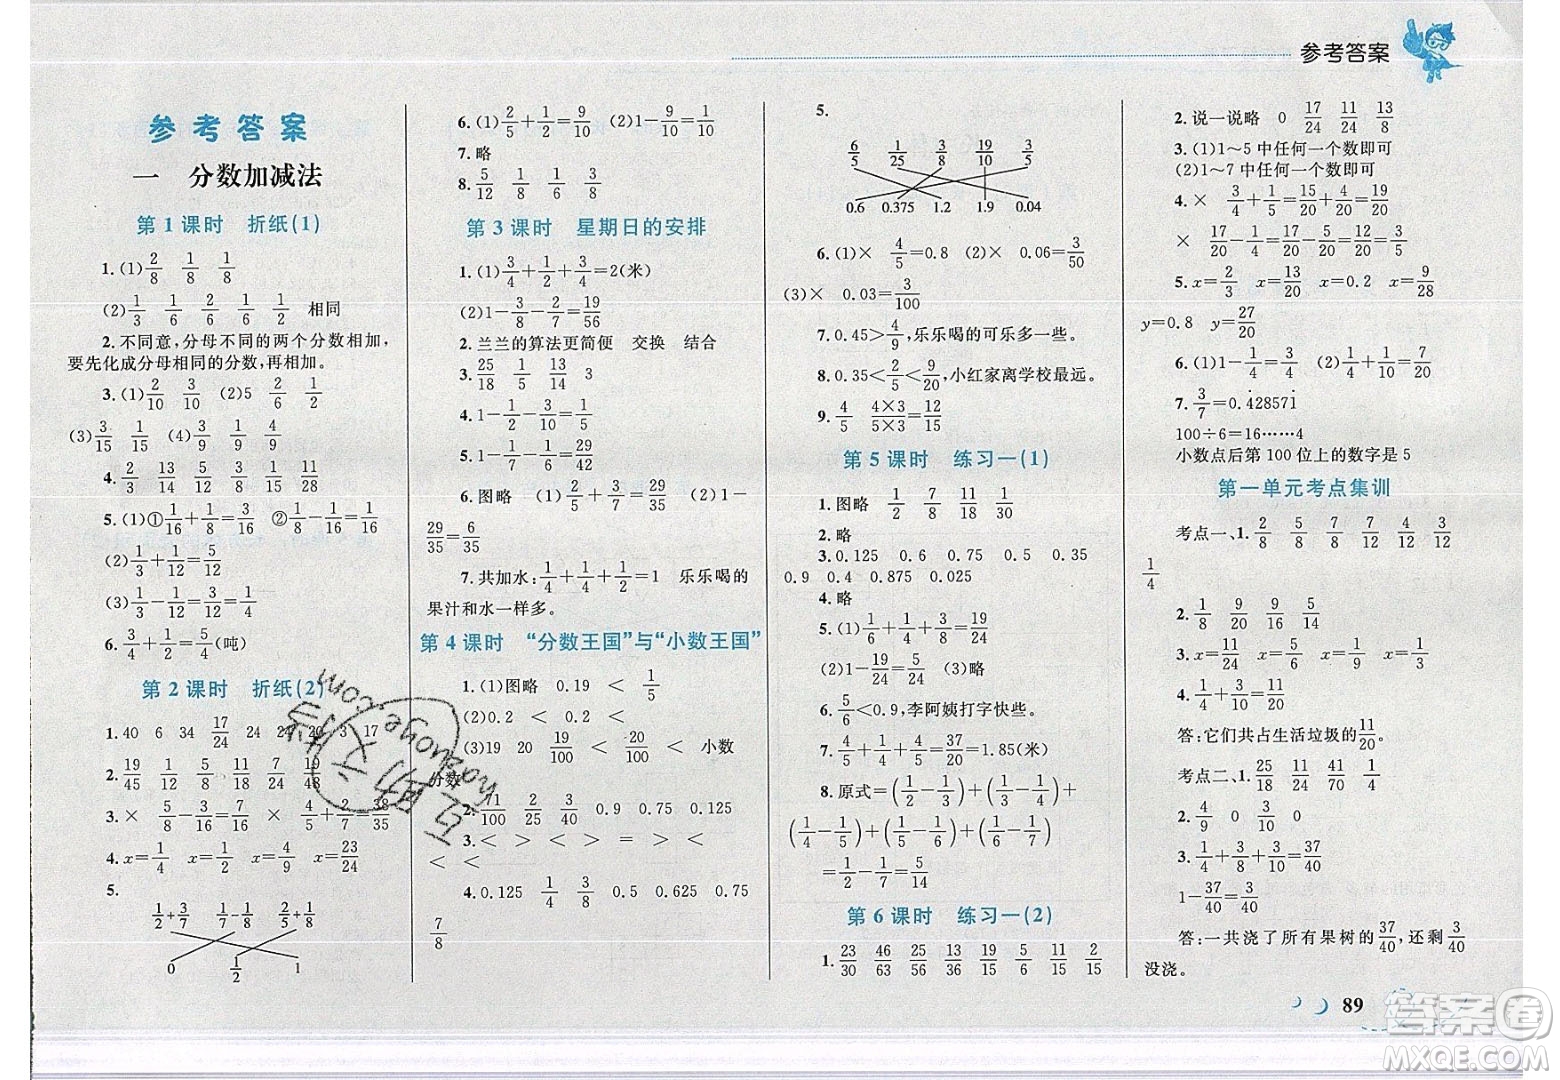 参考答案
参考答案
一 分数加减法
第1课时 折纸(1)
1.(1)2/8 1/8 1/8
(2)1/3 1/6 2/6 1/6 1/2 相同
2.不同意,分母不同的两个分数相加,
要先化成分母相同的分数,再相加。
3.(1)2/10 3/10 (2)5 2/6 1/2
(3)3/15 1/15 (4)3/9 1/9 4/9
4.2/3 13/14 5/12 14/15 11/28
5.(1)①1/16+1/8=3/16 ②1/8-1/16=1/16
(2)1/3+1/12=5/12
(3)1/3-1/12=3/12=1/4
6.3/4+1/2=5/4(吨)
第2课时 折纸(2)
1.40 6 34 17/24 24 24 20 3 17
2.19/45 11/12 18/35 11/12 7/24 19/48
3.× 5/8-3/16=7/16 × 4/5+2/7=38/35
4.x=1/4 x=3/4 x=4/9 x=23/24
5.
1/2+3/7 1/7-1/8 2/5+1/8
0 1/2 1
6.(1)2/5+1/2=9/10 (2)1-9/10=1/10
7.略
8.5/12 1/8 1/6 3/8
第3课时 星期日的安排
1.(1)3/4+1/2+3/4=2(米)
(2)1-3/8-2/7=19/56
2.兰兰的算法更简便 交换 结合
3.25/18 1/5 13/14 3
4.1-1/2-3/10=1/5
5.1-1/7-1/6=29/42
6.图略 (1)2/5+3/7=29/35 (2)1-
29/35=6/35
7.共加水:1/4+1/4+1/2=1 乐乐喝的
果汁和水一样多。
第4课时 “分数王国”与“小数王国”
1.(1)图略 0.19 < 1/5
(2)0.2 < 0.2 <
(3)19 20 19/100 < 20/100 < 小数
分数
2.71/100 2/25 3/40 0.9 0.75 0.125
3.< > < > = > <
< <
4.0.125 1/4 3/8 0.5 0.625 0.75
7/8
5.
6/5 1/25 3/8 19/10 3/5
0.6 0.375 1.2 1.9 0.04
6.(1)× 4/5=0.8 (2)× 0.06=3/50
(3)× 0.03=3/100
7.0.45>4/9,乐乐喝的可乐多一些。
8.0.35<2/5<9/20,小红家离学校最远。
9.4/5 4×3/5×3=12/15
第5课时 练习一(1)
1.图略 1/2 7/8 11/18 1/30
2.略
3.0.125 0.6 0.75 0.5 0.35
0.9 0.4 0.875 0.025
4.略
5.(1)1/6+1/4+3/8=19/24
(2)1-19/24=5/24 (3)略
6.5/6<0.9,李阿姨打字快些。
7.4/5+1/4+4/5=37/20=1.85(米)
8.原式=(1/2-1/3)+(1/3-1/4)+
(1/4-1/5)+(1/5-1/6)+(1/6-1/7)
=1/2-1/7=5/14
第6课时 练习一(2)
1.23/30 46/63 25/26 13/36 19/15 5/16 11/12 2/15
2.说一说略 0 17/24 11/24 13/8
3.(1)1~5中任何一个数即可
(2)1~7中任何一个数即可
4.× 3/4+1/5=15/20+4/20=19/20
× 17/20-1/4=17/20-5/20=12/20
5.x=2/3 x=13/20 x=0.2 x=9/28
y=0.8 y=27/20
6.(1)1/5-1/6=1/30 (2)1/4-1/8=1/8
7.3/7=0.4̇28571̇
100÷6=16……4
小数点后第100位上的数字是5
第一单元考点集训
考点一、1.2/8 5/8 7/8 7/12 4/12 3/12
1/4
2.1/8 9/20 9/56 14/15
3.x=1/24 x=4/35 x=19/24
4.1/4+3/10=11/20
答:它们共占生活垃圾的11/20。
考点二、1.25/18 11/24 41/70 1/4
2.4/9 0 3/10
3.1/4+3/8+3/10=37/40
1-37/40=3/40
答:一共浇了所有果树的37/40,还剩3/40
没浇。
89
答案卷
MXQE.COM